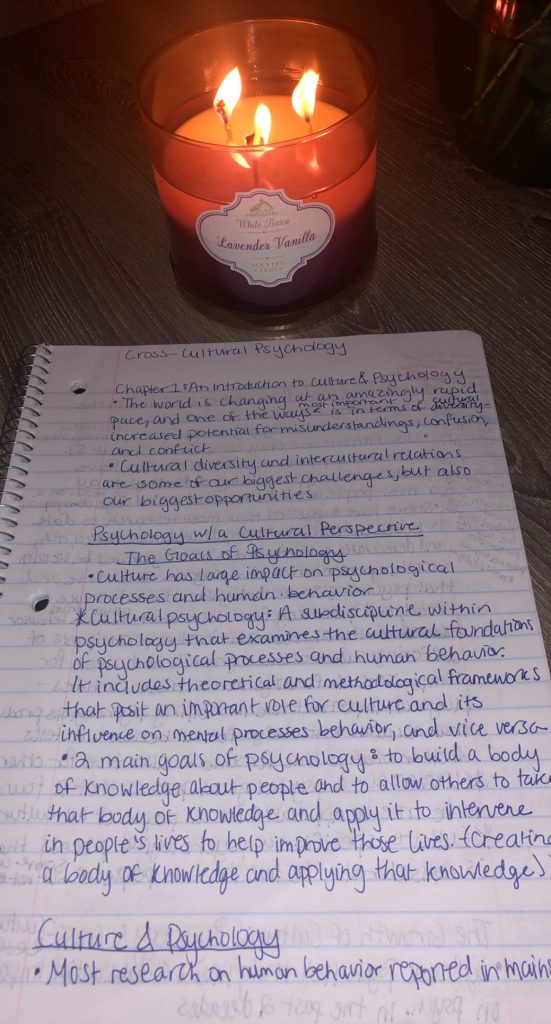 White Barn
Lavender Vanilla
SCENTED
CANDLE
Cross-Cultural Psychology
Chapter 1: An Introduction to Culture & Psychology
• The world is changing at an amazingly rapid
pace, and one of the most important ways is in terms of cultural diversity-
increased potential for misunderstandings, confusion,
and conflict
• Cultural diversity and intercultural relations
are some of our biggest challenges, but also
our biggest opportunities
Psychology w/a Cultural Perspective
The Goals of Psychology
• Culture has large impact on psychological
processes and human behavior
* Cultural psychology: A subdiscipline within
psychology that examines the cultural foundations
of psychological processes and human behavior.
It includes theoretical and methodological frameworks
that posit an important role for culture and its
influence on mental processes behavior, and vice versa
• 2 main goals of psychology: to build a body
of knowledge about people and to allow others to take
that body of knowledge and apply it to intervene
in people's lives to help improve those lives. (Creating
a body of knowledge and applying that knowledge)
Culture & Psychology
• Most research on human behavior reported in mains